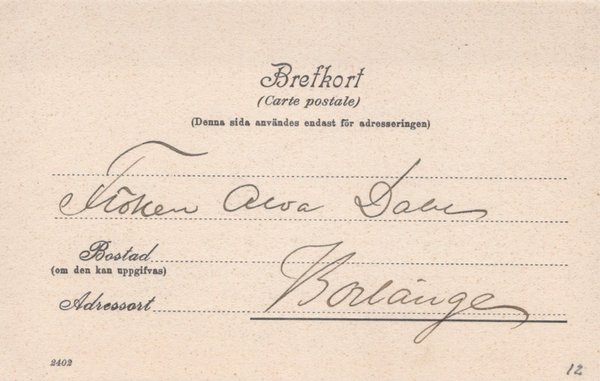 Brefkort
(Carte postale)
(Denna sida användes endast för adresseringen)
Fröken Alva
Bostad
(om den kan uppgifvas)
Borlänge
Adressort
2402
12